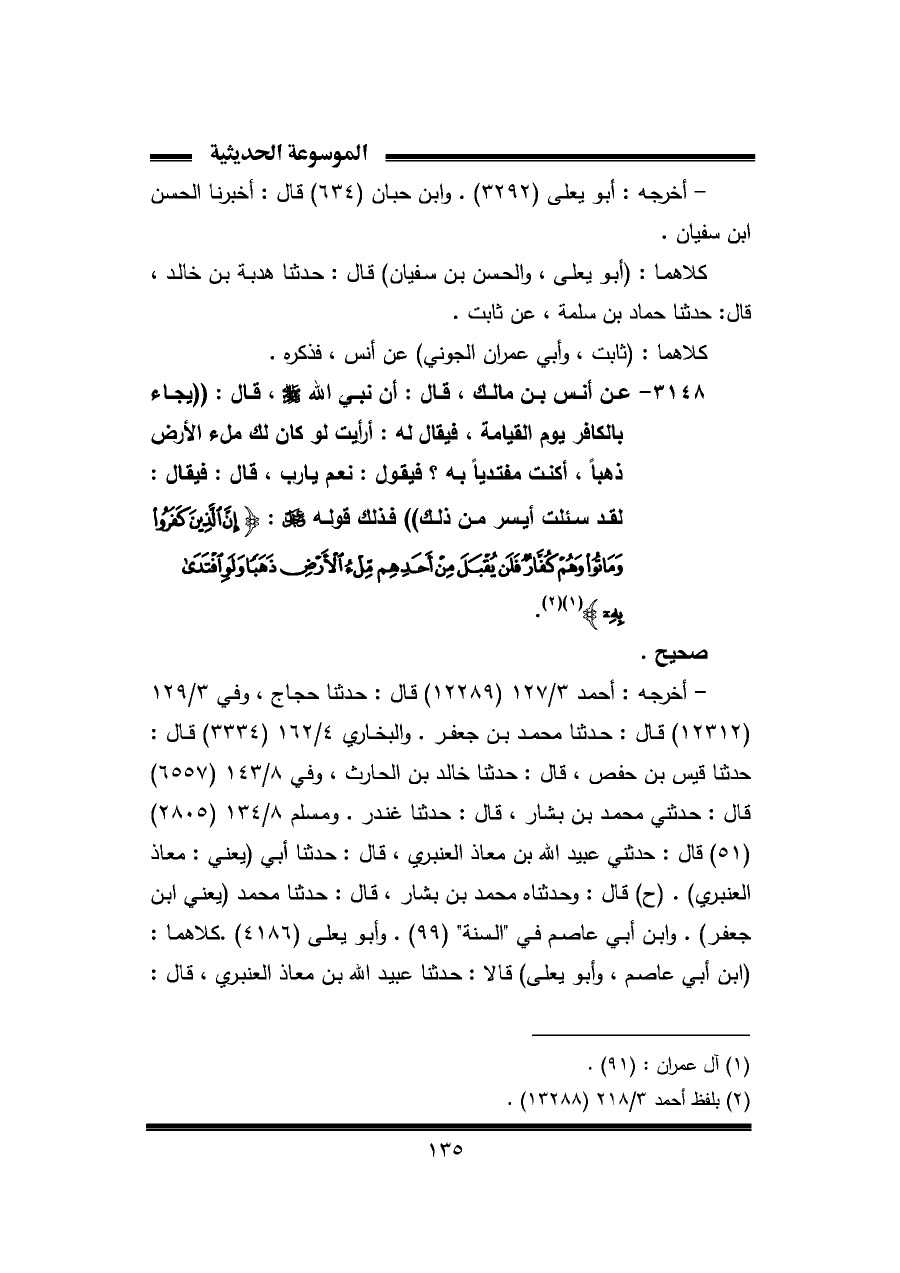 الموسوعة الحديثية
- أخرجه : أبو يعلى (٣٢٩٢) . وابن حبان (٦٣٤) قال : أخبرنا الحسن
ابن سفيان .
كلاهما : (أبو يعلى ، والحسن بن سفيان) قال : حدثنا هدبة بن خالد ،
قال: حدثنا حماد بن سلمة ، عن ثابت .
كلاهما : (ثابت ، وأبي عمران الجوني) عن أنس ، فذكره .
٣١٤٨- عن أنس بن مالك ، قال : أن نبي الله ﷺ ، قال : ((يجاء
بالكافر يوم القيامة ، فيقال له : أرأيت لو كان لك ملء الأرض
ذهباً ، أكنت مفتدياً به ؟ فيقول : نعم يارب ، قال : فيقال :
لقد سئلت أيسر من ذلك)) فذلك قوله ﷻ : ﴿ إِنَّ ٱلَّذِينَ كَفَرُواْ
وَمَاتُواْ وَهُمْ كُفَّارٌ فَلَن يُقْبَلَ مِنْ أَحَدِهِم مِّلْءُ ٱلْأَرْضِ ذَهَبًا وَلَوِ ٱفْتَدَىٰ
بِهِۦ ﴾(١)(٢).
صحيح .
- أخرجه : أحمد ١٢٧/٣ (١٢٢٨٩) قال : حدثنا حجاج ، وفي ١٢٩/٣
(١٢٣١٢) قال : حدثنا محمد بن جعفر . والبخاري ١٦٢/٤ (٣٣٣٤) قال :
حدثنا قيس بن حفص ، قال : حدثنا خالد بن الحارث ، وفي ١٤٣/٨ (٦٥٥٧)
قال : حدثني محمد بن بشار ، قال : حدثنا غندر . ومسلم ١٣٤/٨ (٢٨٠٥)
(٥١) قال : حدثني عبيد الله بن معاذ العنبري ، قال : حدثنا أبي (يعني : معاذ
العنبري) . (ح) قال : وحدثناه محمد بن بشار ، قال : حدثنا محمد (يعني ابن
جعفر) . وابن أبي عاصم في "السنة" (٩٩) . وأبو يعلى (٤١٨٦) .كلاهما :
(ابن أبي عاصم ، وأبو يعلى) قالا : حدثنا عبيد الله بن معاذ العنبري ، قال :
(١) آل عمران : (٩١) .
(٢) بلفظ أحمد ٢١٨/٣ (١٣٢٨٨) .
١٣٥